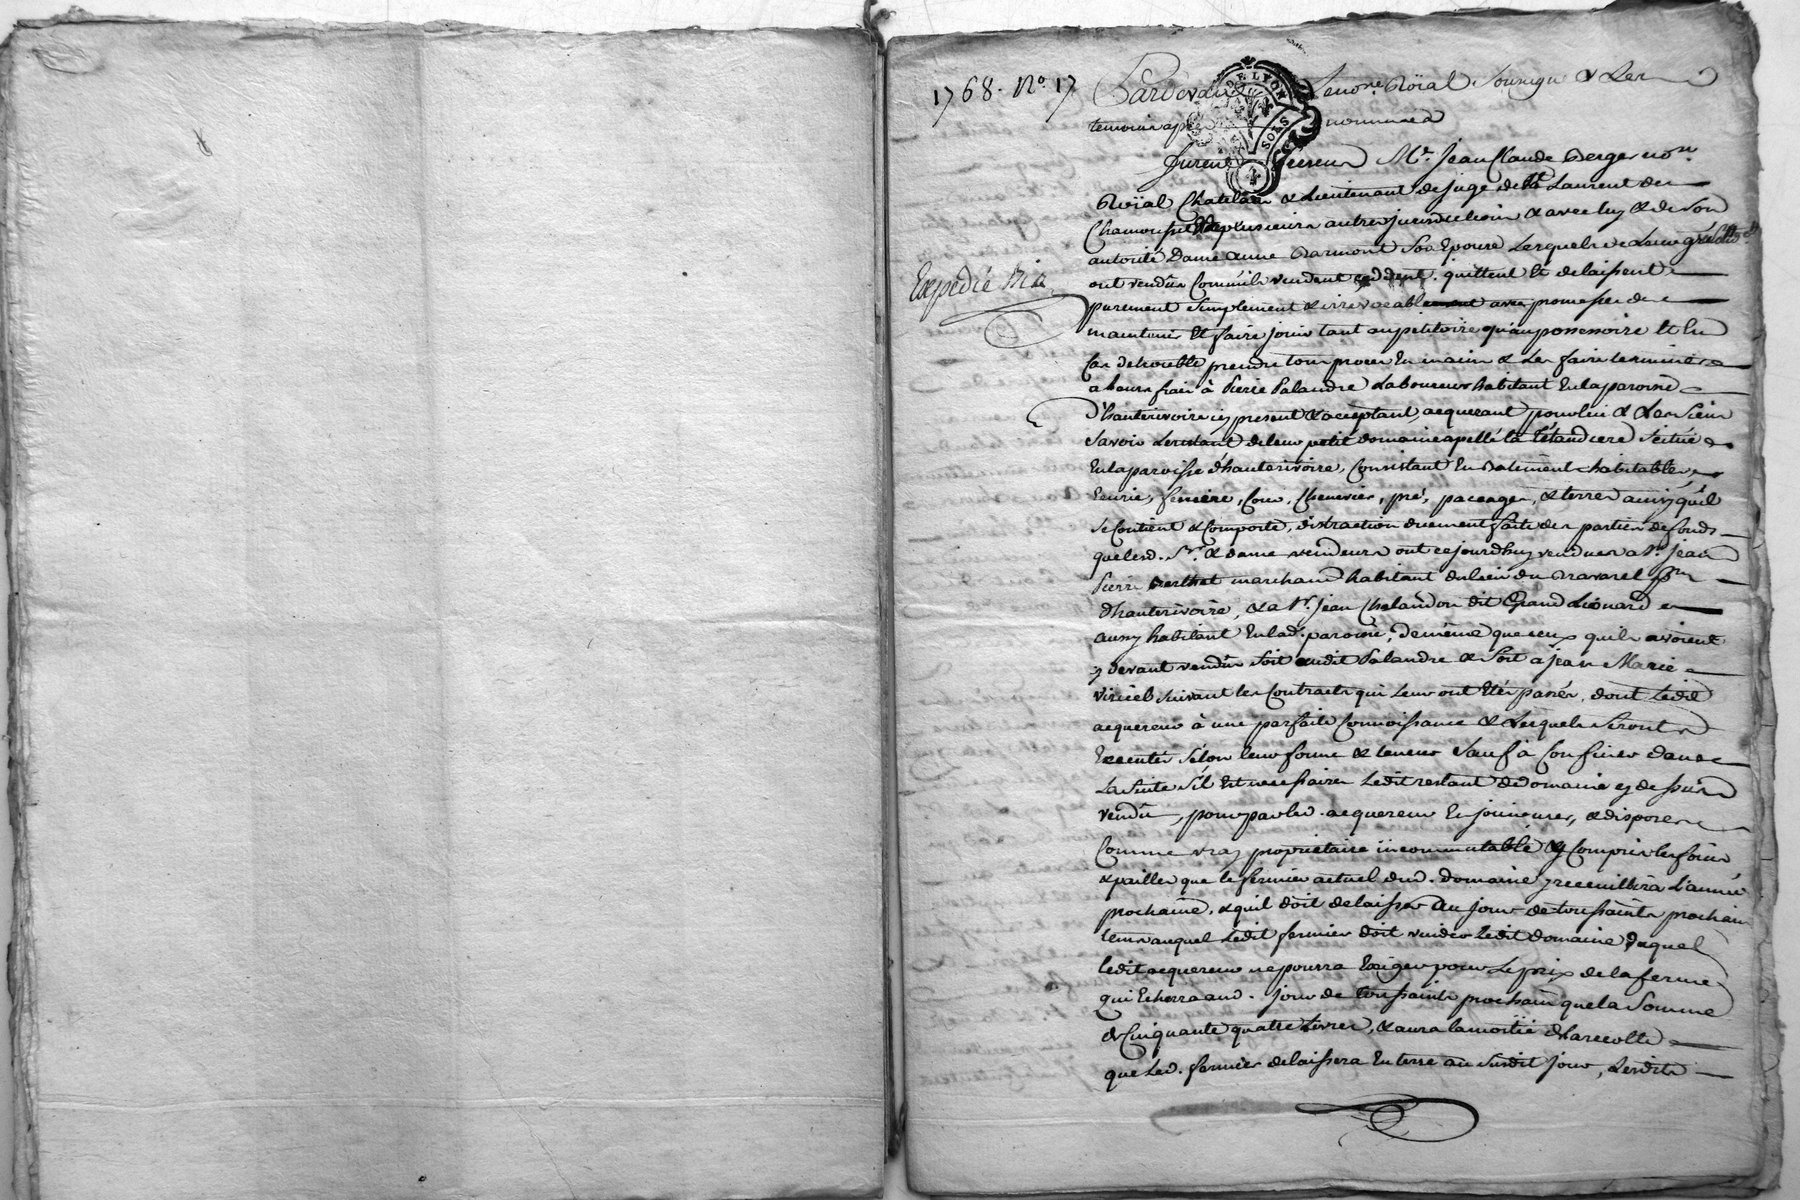 1768. No. 17
Pardevant Le no.re Roïal Sousigné & Les
temoins après nommés
Expedié
furent presens Me. Jean Claude Berger no.re
Roïal Chatelain & Lieutenant de juge de St Laurent de
Chamousset & de plusieurs autres jurisdictions & avec luy & de Son
autorité Dame anne Son Epouse Lesquels de Leur gré
ont vendûs Comm'ils vendent ceddent, quittent Et delaissent
purement Simplement & irrevocablement avec promesse de
maintenir Et faire jouir tant au petitoire qu'au possessoire Et En
Cas de trouble prendre tous procès En main & Les faire terminer
a Leurs frais à Pierre Palandre Laboureur habitant En la paroisse
d'hauterivoire icy present & acceptant, acquerant pour lui & Les Siens
Savoir Le restant de leur petit domaine apellé la Sçitué
En la paroisse d'hauterivoire, Consistant En Batiment habitable,
Ecurie, feniere, Cour, Chenevier, pré, paccages, & terres ainsy qu'il
Se Contient & Comporte, distraction duement faite des parties de fonds
que lesd. Srs. & dame vendeurs ont cejourdhuy vendues a Sr. jean
Pierre Berthet marchand habitant du lieu du
d'hauterivoire, & a Sr. jean Chalandon dit Grand Leonard
aussy habitant En lad. paroisse, de même que ceux qu'ils avoient
cy devant vendûs Soit audit Palandre & Soit à jean Marie
Viricel Suivant les Contracts qui Leur ont Etés passés, dont Ledit
acquereur à une parfaite Connoissance & Lesquels Seront
Executés Sélon leur forme & teneur Sauf à Confiner dans
La Suite S'il Est necessaire Ledit restant de domaine cy dessus
vendû, pour par led. acquereur En jouir, & disposer
Comme vray proprietaire incommutable y Compris les foins
& pailles que le fermier actuel dud. domaine y recueillira L'année
prochaine, & qu'il doit delaisser Au jour de toussaints prochain
tems auquel Ledit fermier doit vuider ledit domaine, duquel
ledit acquereur ne pourra Exiger pour Le prix de la ferme
qui Echerra aud. jour de toussaints prochain que la Somme
de Cinquante quatre Livres, & aura la moitié de la recolte
que Led. fermier delaissera En terre au Susdit jour, Lesdits